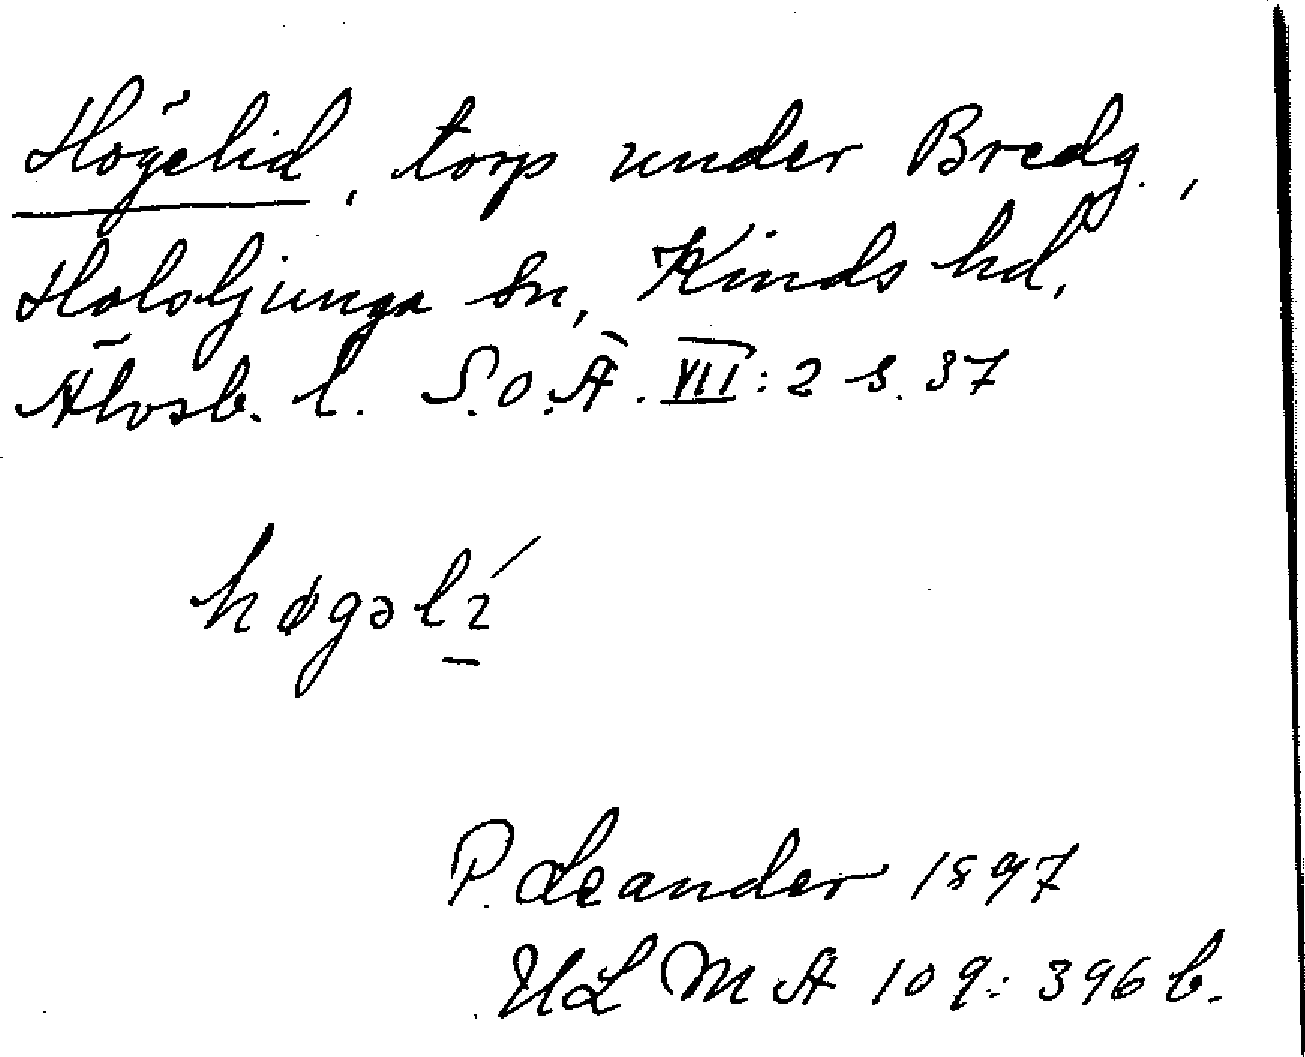 Högelid, torp under Bredg.,
Holsljunga sn, Kinds hd,
Älvsb. l. S.O.Ä. VII: 2 s. 37
høgəlí
P. Leander 1897
ULMA 109: 396 b.